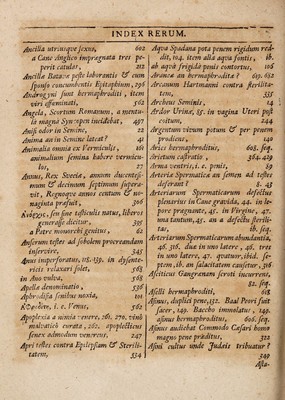 INDEX RERUM.
Ancilla utriusque sexus, 602
a Cane Anglico impregnata tres peperit catulos, 212
Ancillæ Batavæ peste laborantis & cum sponso concumbentis Epitaphium, 296
Androgyni sunt hermaphroditi, item viri effœminati, 562
Angela, Scortum Romanum, a mentula magnâ Syncopen incidebat, 497
Anisi odor in Semine, 22
Anima an in Semine lateat? 41
Animalia omnia ex Vermiculis, 161
animalium semina habere vermiculos, 140
Annus, Rex Sveciæ, annum ducentesimum & decimum septimum supera-
vit, Regnoque annos centum & nonaginta præfuit, 306
sen sine testiculis natus, liberos generasse dicitur, 395
a Patre monarchi genitus, 62
Anserum testes ad sobolem procreandam inservire, 345
Anus imperforatus, 125. 139. in dysentericis relaxari solet, 568
in Ano vulva, 568
Apella denominatio, 536
Aphrodisia senibus noxia, 101
i. e. Venus, 562
Apoplexia a nimia venere, 260. 270. vino mulcatico curata, 262. apoplecticus senex admodum venereus, 247
Apri testes contra Epilepsiam & Sterilitatem, 334
Aqua Spadana pota penem rigidum reddit, 104. item alia aqua fontis, ib.
ab aquâ frigidâ penis contortus, 106
Araneæ an hermaphroditæ? 69. 682
Arcanum Hartmanni contra sterilitatem, 355
Archeus Seminis, 14
Ardor Urinæ, 85. in vagina Uteri post coitum, 244
Argentum vivum potum & per penem prodiens, 140
Aries hermaphroditus, 608. seq.
Arietum castratio, 364. 429
Arma ventris, i. e. penis, 59
Arteria Spermatica an semen ad testes deferant? 8. 45
Arteriarum Spermaticarum defectus plerunius in Cane gravida, 44. in lepore pragnante, 45. in Virgine, 47. una tantum, 45. an a defectu sterilitas, ib.
Arteriarum Spermaticarum abundantia, 46. 316. duæ in uno latere, 46. tres in uno latere, 47. quatuor, ibid. septem, ib. an falacitatem causetur, 316
Asciticus Gangrænam scroti incurrens, 82. seq.
Aselli hermaphroditi, 618
Asinus, duplici pene, 132. Baal Peori fuit sacer, 149. Baccho immolatur, 149. asinus hermaphroditus, 606. seq.
Asinus audiebat Commodo Cæsari homo magno pene præditus, 322
Asini cultus unde Judæis tribuatur?
349
Asta-